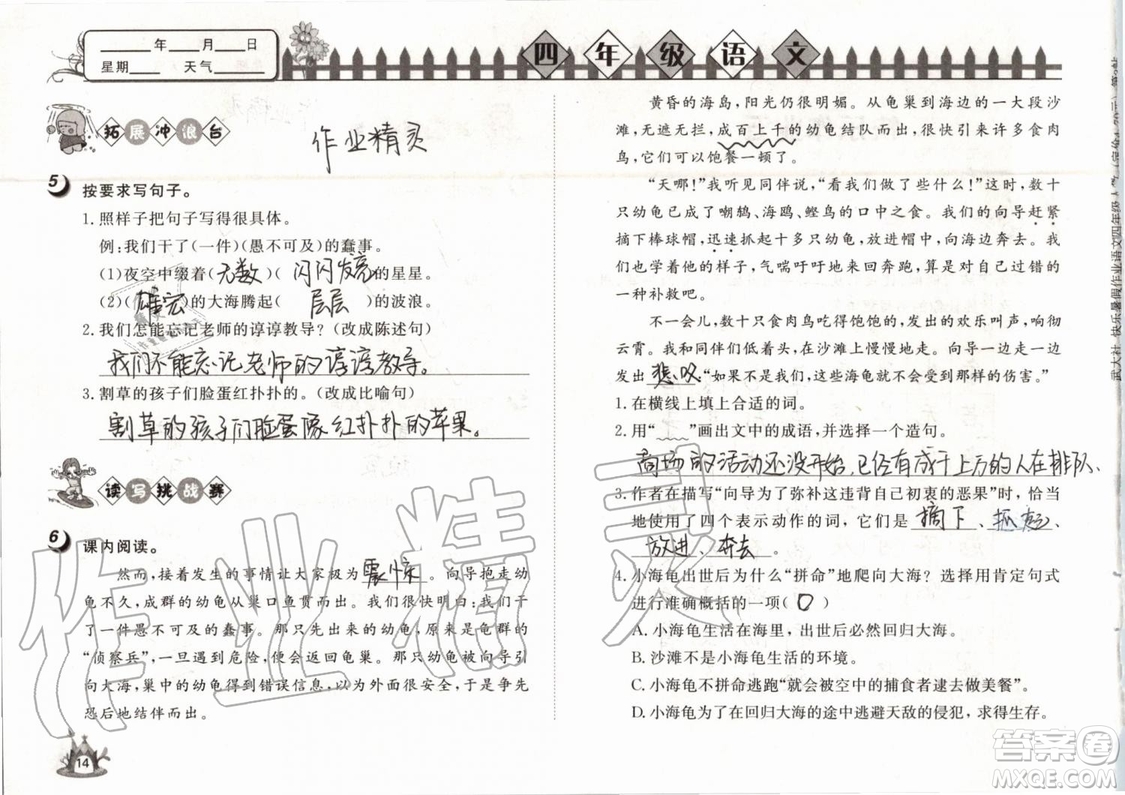 ____年____月____日
星期____ 天气____
四年级语文
拓展冲浪台
作业精灵
5 按要求写句子。
1. 照样子把句子写得很具体。
例:我们干了(一件)(愚不可及)的蠢事。
(1)夜空中缀着(无数)(闪闪发亮)的星星。
(2)(雄宏)的大海腾起(层层)的波浪。
2. 我们怎能忘记老师的谆谆教导?(改成陈述句)
我们不能忘记老师的谆谆教导。
3. 割草的孩子们脸蛋红扑扑的。(改成比喻句)
割草的孩子们脸蛋像红扑扑的苹果。
读写挑战赛
6 课内阅读。
然而,接着发生的事情让大家极为震惊。向导抱走幼
龟不久,成群的幼龟从巢口鱼贯而出。我们很快明白:我们干
了一件愚不可及的蠢事。那只先出来的幼龟,原来是龟群的
“侦察兵”,一旦遇到危险,便会返回龟巢。那只幼龟被向导引
向大海,巢中的幼龟得到错误信息,以为外面很安全,于是争先
恐后地结伴而出。
14
黄昏的海岛,阳光仍很明媚。从龟巢到海边的一大段沙
滩,无遮无拦,成百上千的幼龟结队而出,很快引来许多食肉
鸟,它们可以饱餐一顿了。
“天哪!”我听见同伴说,“看我们做了些什么!”这时,数十
只幼龟已成了嘲鸫、海鸥、鲣鸟的口中之食。我们的向导赶紧
摘下棒球帽,迅速抓起十多只幼龟,放进帽中,向海边奔去。我
们也学着他的样子,气喘吁吁地来回奔跑,算是对自己过错的
一种补救吧。
不一会儿,数十只食肉鸟吃得饱饱的,发出的欢乐叫声,响彻
云霄。我和同伴们低着头,在沙滩上慢慢走。忽然,我们的向导
发出悲叹:“如果不是我们,这些海龟就不会受到那样的伤害。”
1. 在横线上填上合适的词。
2. 用“﹏﹏”画出文中的成语,并选择一个造句。
商场的活动还没开始,已经有成千上万的人在排队、
3. 作者在描写“向导为了弥补这违背自己初衷的恶果”时,恰当
地使用了四个表示动作的词,它们是 摘下、抓起、
放进、奔去。
4. 小海龟出世后为什么“拼命”地爬向大海?选择用肯定句式
进行准确概括的一项( D )
A. 小海龟生活在海里,出世后必然回归大海。
B. 沙滩不是小海龟生活的环境。
C. 小海龟不拼命逃跑“就会被空中的捕食者做美餐”。
D. 小海龟为了在回归大海的途中逃避天敌的侵犯,求得生存。
作业精灵
答案圈
MXQE.COM